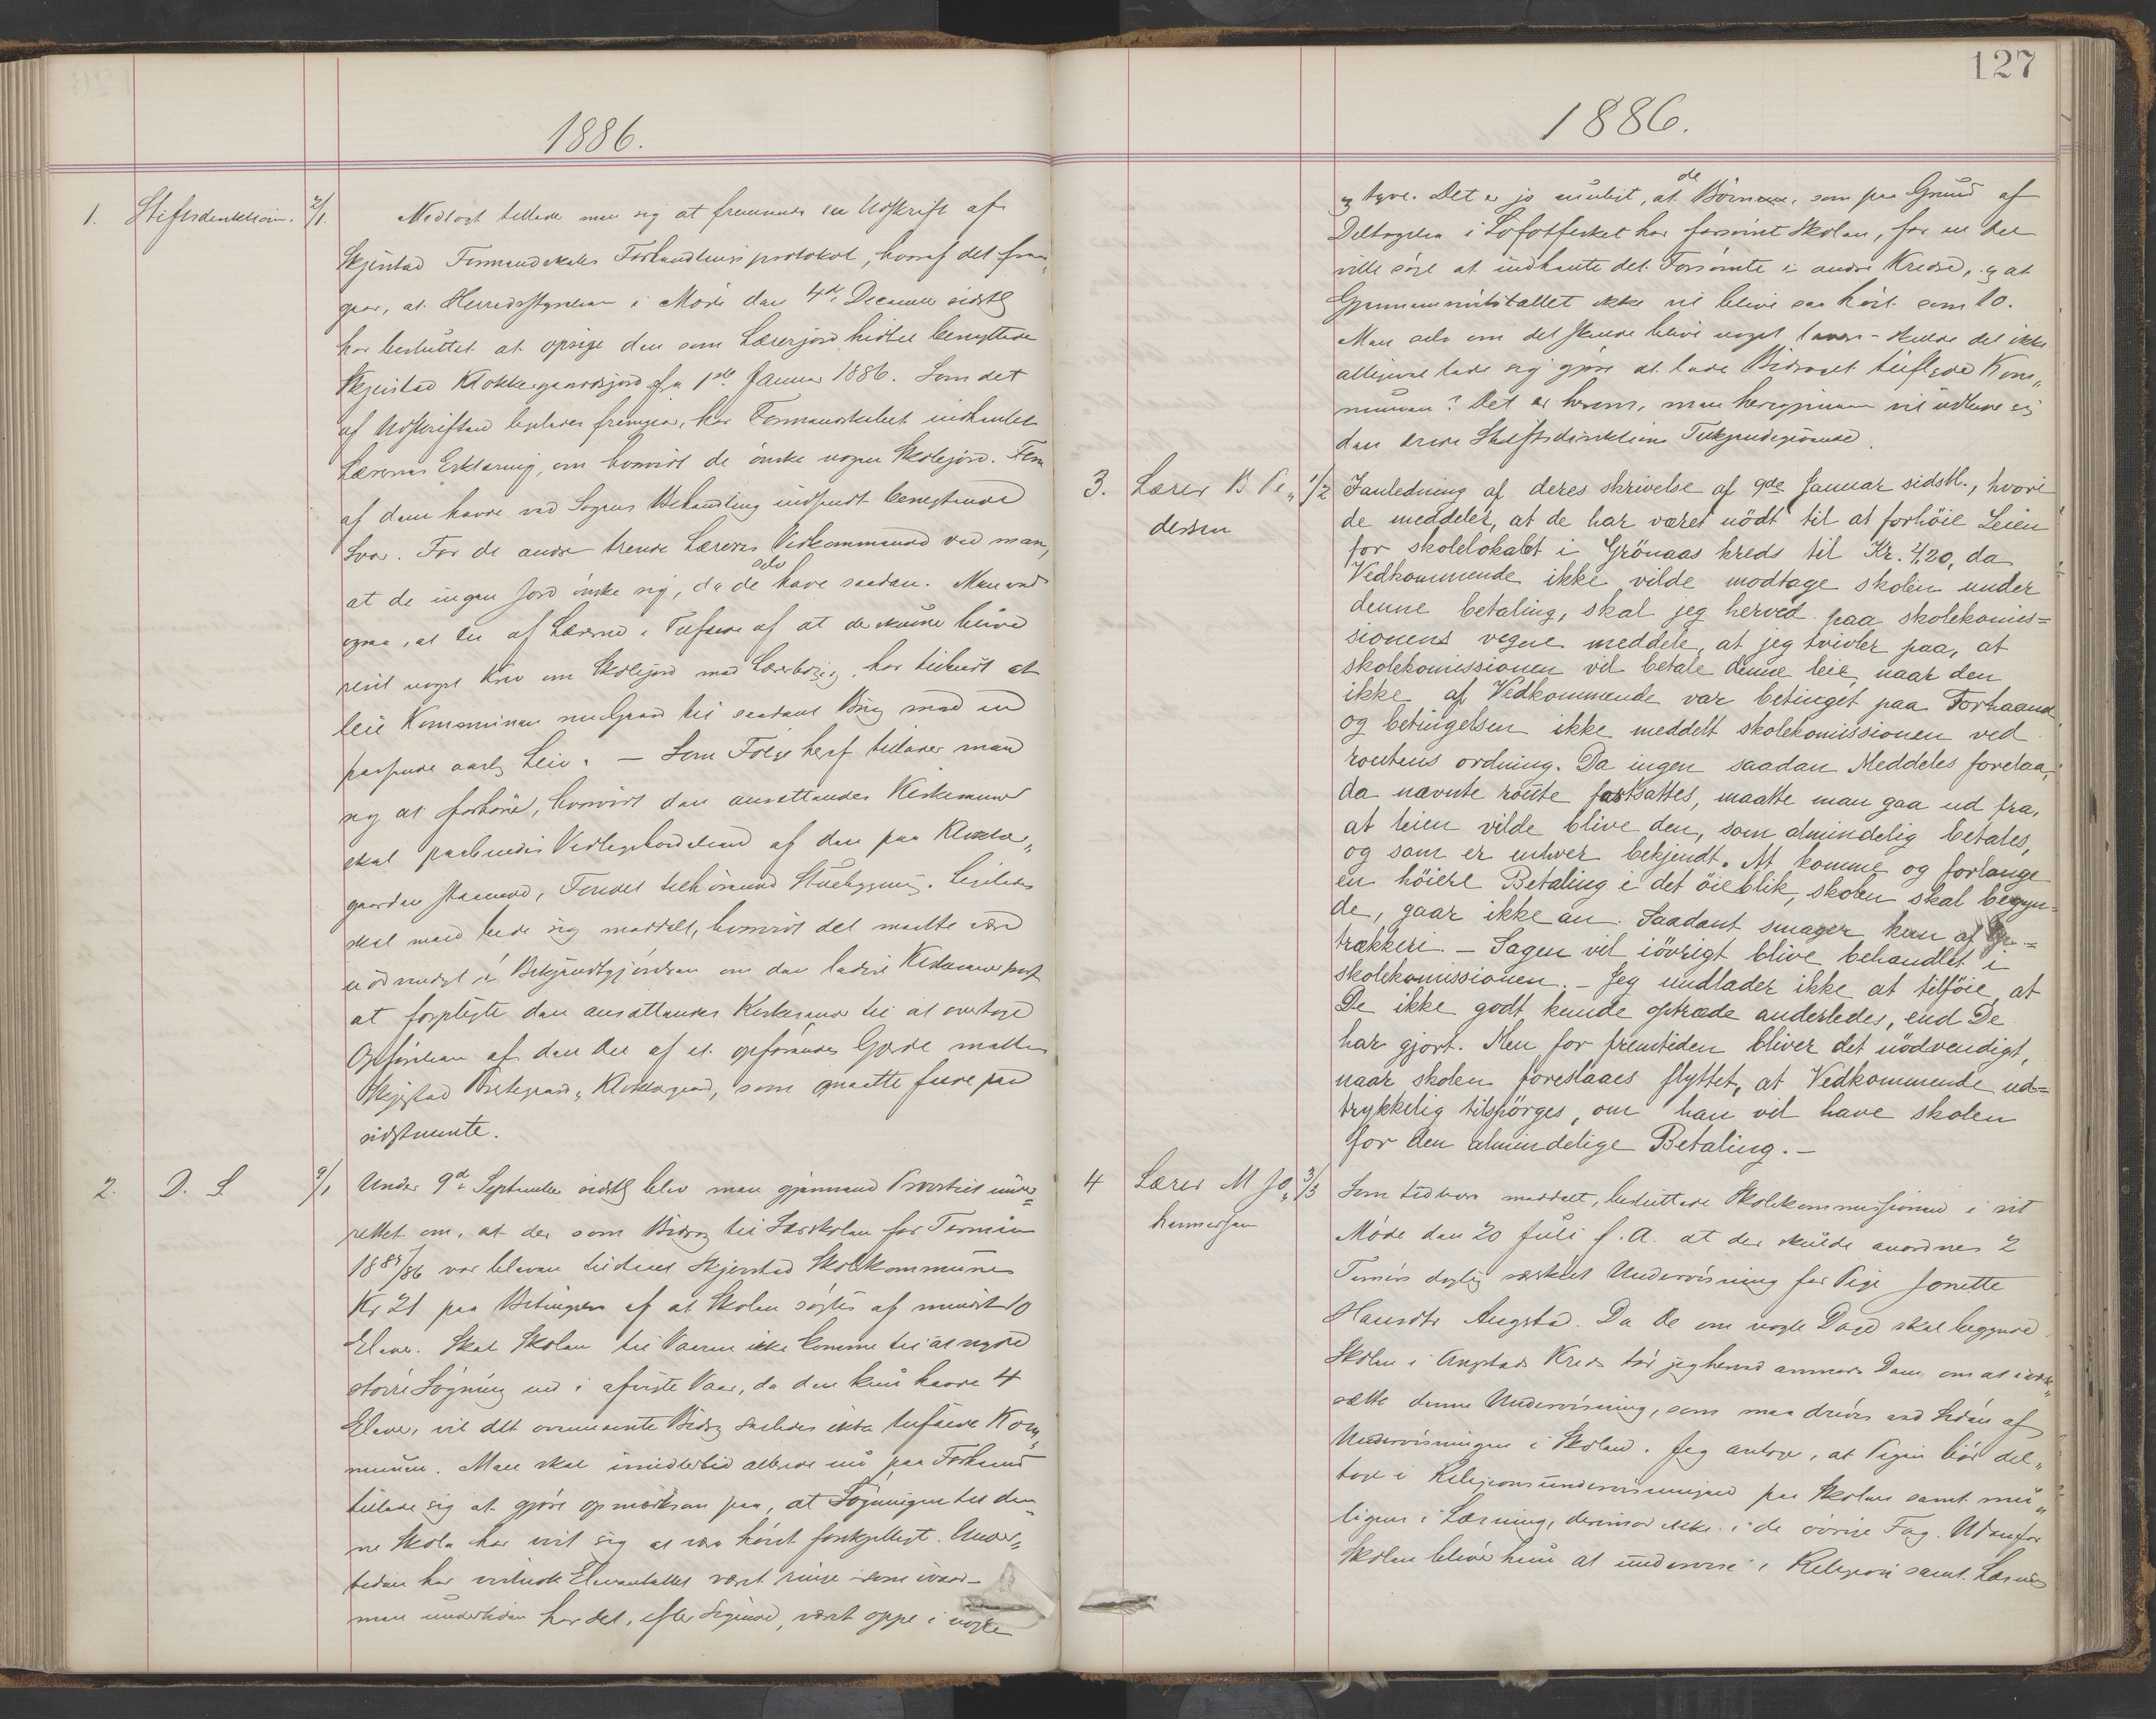 1886.
1. Stiftsdirektionen. 2/1. Vedlagt tillader man sig at fremsende en Udskrift af
Skjerstad Formandskabs Forhandlingsprotokol, hvoraf det frem„
gaar, at Herredsstyrelsen i Møde den 4de December sidstl
har besluttet at opsige den som Lærerjord hidtil benyttede
Skjerstad Klokkergaardsjord fra 1ste Januar 1886. Som det
af Udskriften ligeledes fremgaar, har Formandskabet indhentet
Lærernes Erklæring, om hvorvidt de ønske nogen Skolejord. Fem
af dem havde ved Sagens Behandling indsendt benegtende
Svar. For de andre trende Læreres Vedkommende ved man,
at de ingen Jord ønske sig, da de selv have saadan. Man ved
ogsaa, at en af Lærerne i Tilfælde af at der skulde blive
reist noget Krav om Skolejord med Lærerbolig, har tilbudt at
leie Kommunen sin Gaard til saadant Brug mod en
passende aarlig Leie. — Som Følge heraf tillader man
sig at forhøre, hvorvidt den ansættendes Kirkesanger
skal paabyrdes Vedligeholdelsen af den paa Klokker„
gaarden staaende, Fondet tilhørende Stuebygning. Ligeledes
skal man bede sig meddelt, hvorvidt det maatte være
nødvendigt i Bekjendtgjørelsen om den ledige Kirkesangerpost
at forpligte den ansættendes Kirkesanger til at overtage
Opførelsen af den Del af et opførendes Gjerde mellem
Skjerstad Prestegaard „ Klokkergaard, som maatte falde paa
sidstnævnte.
2. D. S. 9/1 Under 9de September sidstl blev man gjennem Provstiet under=
rettet om, at der som Bidrag til Lærskolen for Termin
1885/86 var bleven tildelt Skjerstad Skolekommune
Kr 21 paa Betingelse af at Skolen søgtes af mindst 10
Elever. Skal Skolen til Vaaren ikke komme til at nyde
større Søgning end i afvigte Vaar, da den kun havde 4
Elever, vil det ovennævnte Bidrag saaledes ikke tilfalde Kom„
munen. Man skal imidlertid allerede nu paa Forhaand
tillade sig at gjøre opmærksom paa, at Søgningen til den„
ne Skole har vist sig at være høist forskjelligt. Under„
tiden har vistnok Elevantallet været ringe som ivaar-
men undertiden har det, efter Sigende, været oppe i nogle
127
1886.
og tyve. Det er jo muligt, at de Børn, som paa Grund af
Deltagelse i Lofotfisket har forsømt Skolen, for en Del
ville søge at indhente det Forsømte i andre Kredse, og at
Gjennemsnitstallet ikke vil blive saa høit som 10.
Men selv om det skulde blive noget lavere - skulde det ikke
alligevel lade sig gjøre at lade Bidraget tilflyde Kom„
munen? Det er herom, man herigjennem vil udbede sig
den ærede Stiftsdirektions Tilkjendegivende.
3. Lærer B Pe„ 1/2 I anledning af deres skrivelse af 9de Januar sidstl., hvori
dersen de meddeler, at de har været nødt til at forhøie Leien
for skolelokalet i Grönaas kreds til Kr. 4,20, da
Vedkommende ikke vilde modtage skolen under
denne betaling, skal jeg herved paa skolekomis=
sionens vegne meddele, at jeg tvivler paa, at
skolekomissionen vil betale denne leie, naar den
ikke af Vedkommende var betinget paa Forhaand
og betingelsen ikke meddelt skolekomissionen ved
routens ordning. Da ingen saadan Meddelels forelaa,
da nævnte route fastsattes, maatte man gaa ud fra,
at leien vilde blive den, som almindelig betales,
og som er enhver bekjendt. At komme og forlange
en höiere Betaling i det öieblik, skolen skal begyn=
de, gaar ikke an. Saadant smager kun af
trækkeri. - Sagen vil iövrigt blive behandlet i
skolekomissionen. - Jeg undlader ikke at tilföie, at
De ikke godt kunde optræde anderledes, end De
har gjort. Men for fremtiden bliver det nödvendigt,
naar skolen foreslaaes flyttet, at Vedkommende ud=
trykkelig tilspörges, om han vil have skolen
for den almindelige Betaling. -
4 Lærer M Jo„ 3/3 Som tidligere meddelt, besluttede Skolekommissionen i sit
hannessen Møde den 20 Juli f. A. at der skulde anordnes 2
Timers daglig særskilt Undervisning for Pige Jonette
Hansdtr Aug­stad. Da De om nogle Dage skal begynde
Skolen i Angstads Kreds tør jeg herved anmode Dem om at iverk„
sætte denne Undervisning, som maa drives ved Siden af
Undervisningen i Skolen. Jeg antager, at Pigen bør del„
tage i Religionsundervisningen paa Skolen samt mu„
ligens i Læsning, derimod ikke i de øvrige Fag. Udenfor
Skolen bliver hun at undervise i Religion samt Læsning